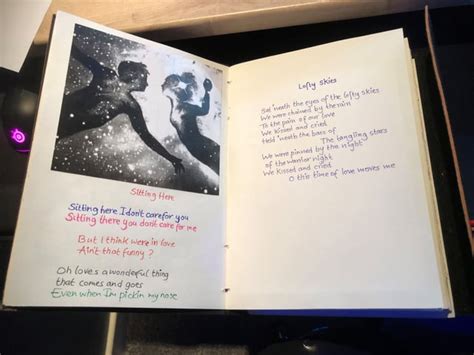 Sitting Here
Sitting here I don't care for you
Sitting there you dont care for me
But I think were in love
Ain't that funny ?
Oh loves a wonderful thing
that comes and goes
Even when Im pickin my nose
Lofty Skies
'neath the eyes of the lofty skies
We were chained by the rain
To the pain of our love
We kissed and cried
tied 'neath the bars of
The tangling stars
We were pinned by the night
of the warrior night
We kissed and cried
O this time of love moves me